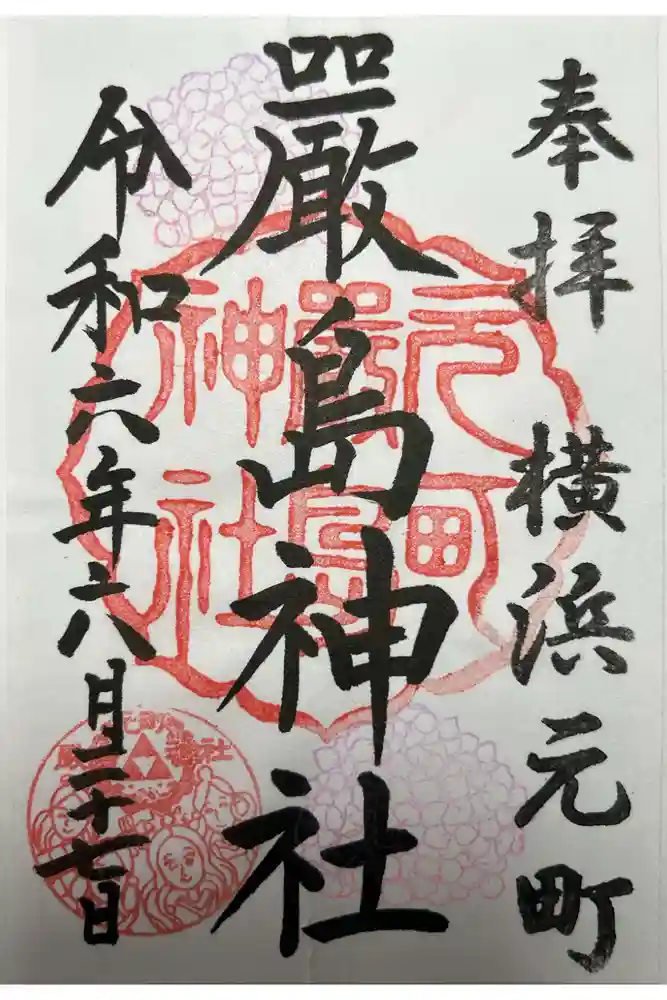 奉拝　横浜元町
厳島神社
令和六年六月二十七日
元町
嚴島
神社
元町嚴島神社